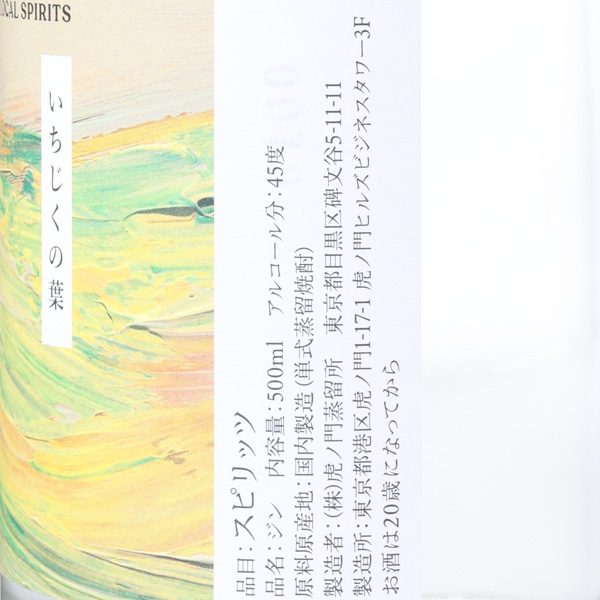 LOCAL SPIRITS
いちじくの葉
品目：スピリッツ
品名：ジン　内容量：500ml　アルコール分：45度
原料原産地：国内製造（単式蒸留焼酎）
製造者：(株)虎ノ門蒸留所　東京都目黒区碑文谷5-11-11
製造所：東京都港区虎ノ門1-17-1 虎ノ門ヒルズビジネスタワー3F
お酒は20歳になってから